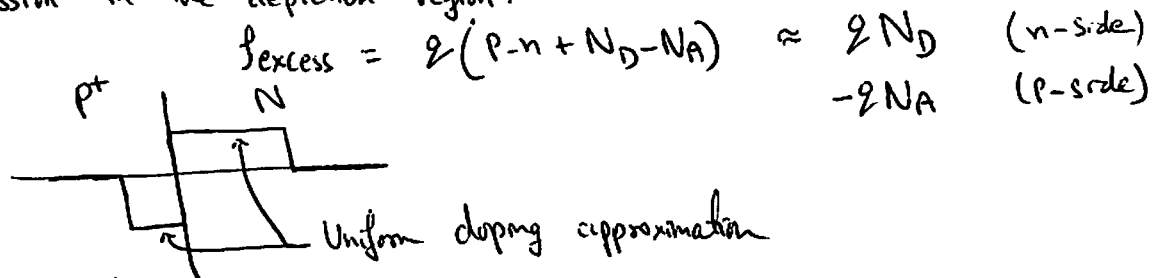 in the depletion region.
ρexcess = q(p-n + ND-NA) ≈ qND (n-side)
-qNA (p-side)
p+ N
Uniform doping approximation